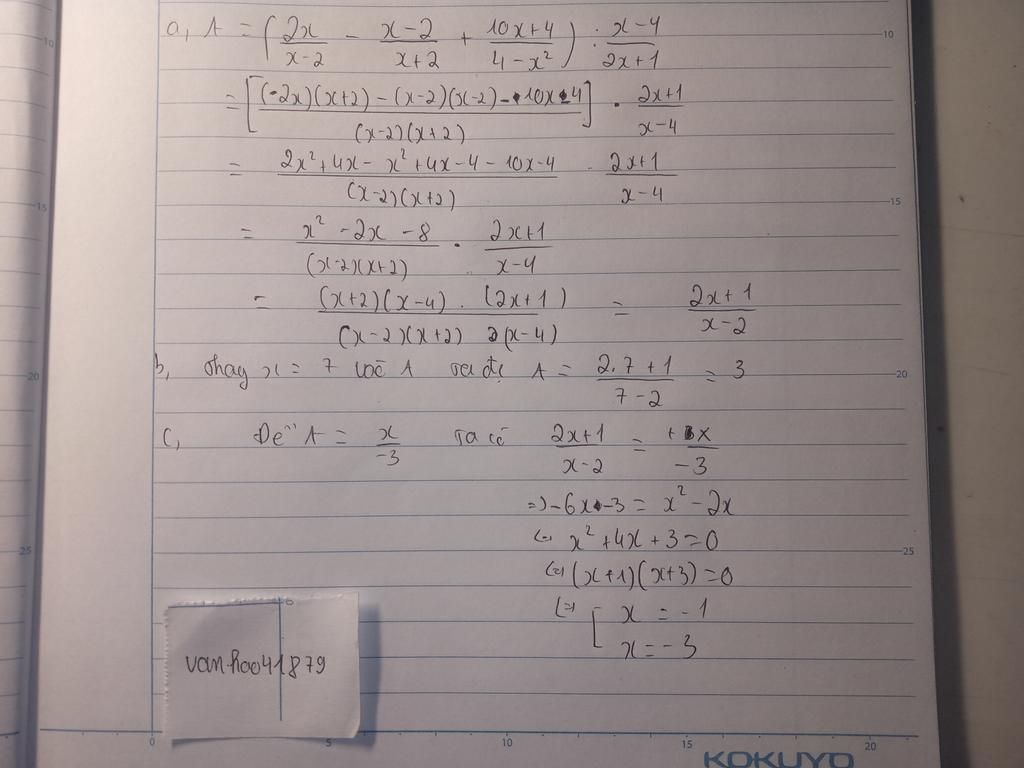 10
a, A = (2x/(x-2) - (x-2)/(x+2) + (10x+4)/(4-x²)) : (x-4)/(2x+1)
10
= [((-2x)(x+2) - (x-2)(x-2) - 10x-4)/((x-2)(x+2))] . (2x+1)/(x-4)
= (2x²+4x- x²+4x-4-10x-4)/((x-2)(x+2)) . (2x+1)/(x-4)
15
15
= (x² -2x -8)/((x-2)(x+2)) . (2x+1)/(x-4)
= ((x+2)(x-4) . (2x+1))/((x-2)(x+2) (x-4)) = (2x+1)/(x-2)
b, Thay x = 7 vào A ta đc A = (2.7+1)/(7-2) = 3
20
20
c, Để A = x/-3 ta có (2x+1)/(x-2) = +x/-3
=> -6x-3 = x² - 2x
(=) x² +4x +3 =0
25
25
(=) (x+1)(x+3) =0
(=) [ x = -1
x = -3
vanhoo41879
0 5 10 15 20
KOKUYO